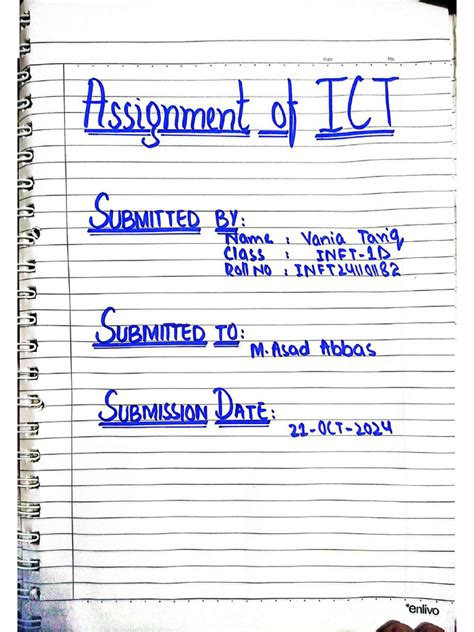 Assignment of ICT
SUBMITTED BY:
Name : Vania Tariq
Class : INFT-1D
Roll No : INFT241101182
SUBMITTED TO:
M.Asad Abbas
SUBMISSION DATE:
22-OCT-2024
*enlivo